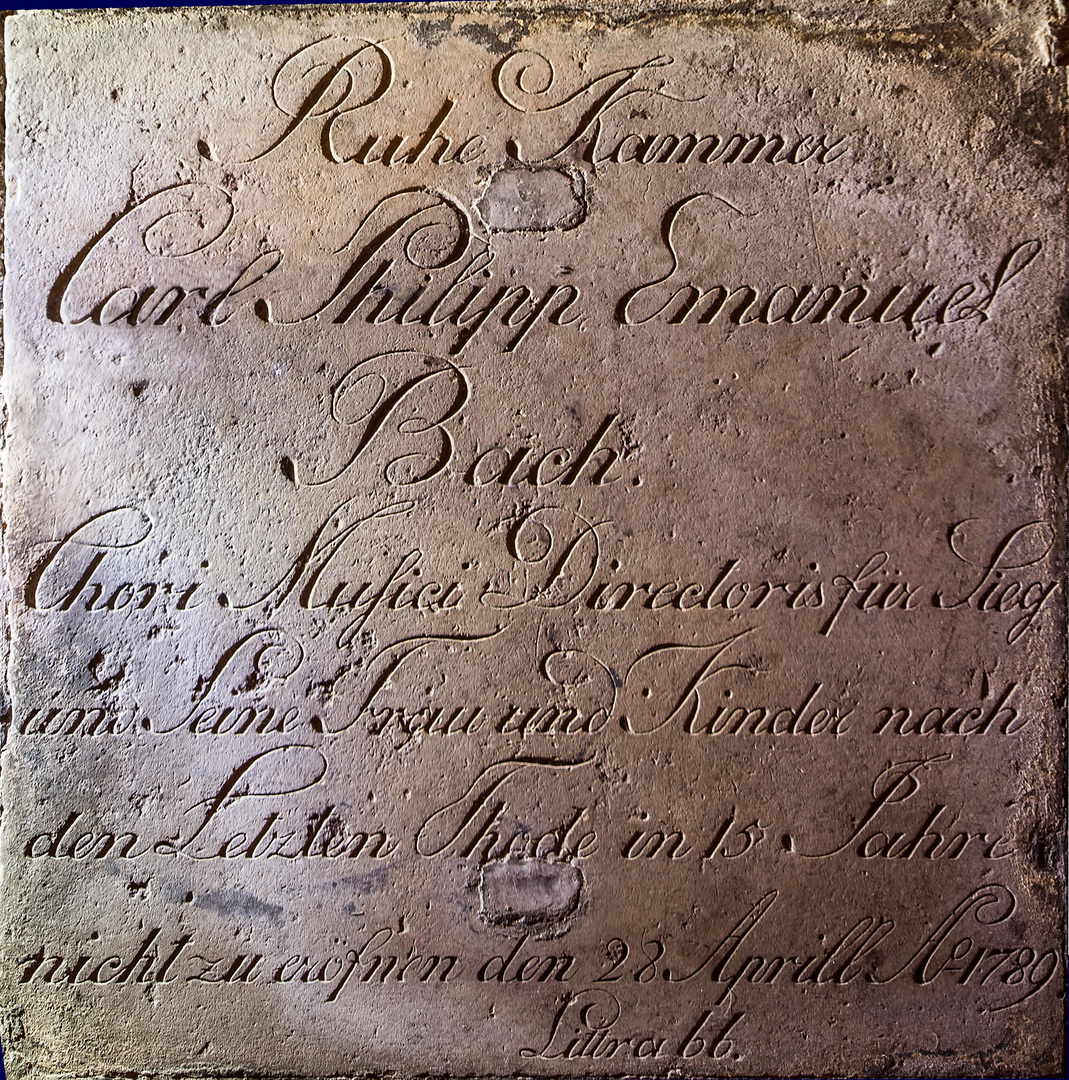 Ruhe Kammer
Carl Philipp Emanuel
Bach.
Chori Muſici Directoris für Sieg
und Seine Frau und Kinder nach
den Letzten Thode in 15 Jahre
nicht zu eröfnen den 28 Aprill Aº 1789
Littra bb.